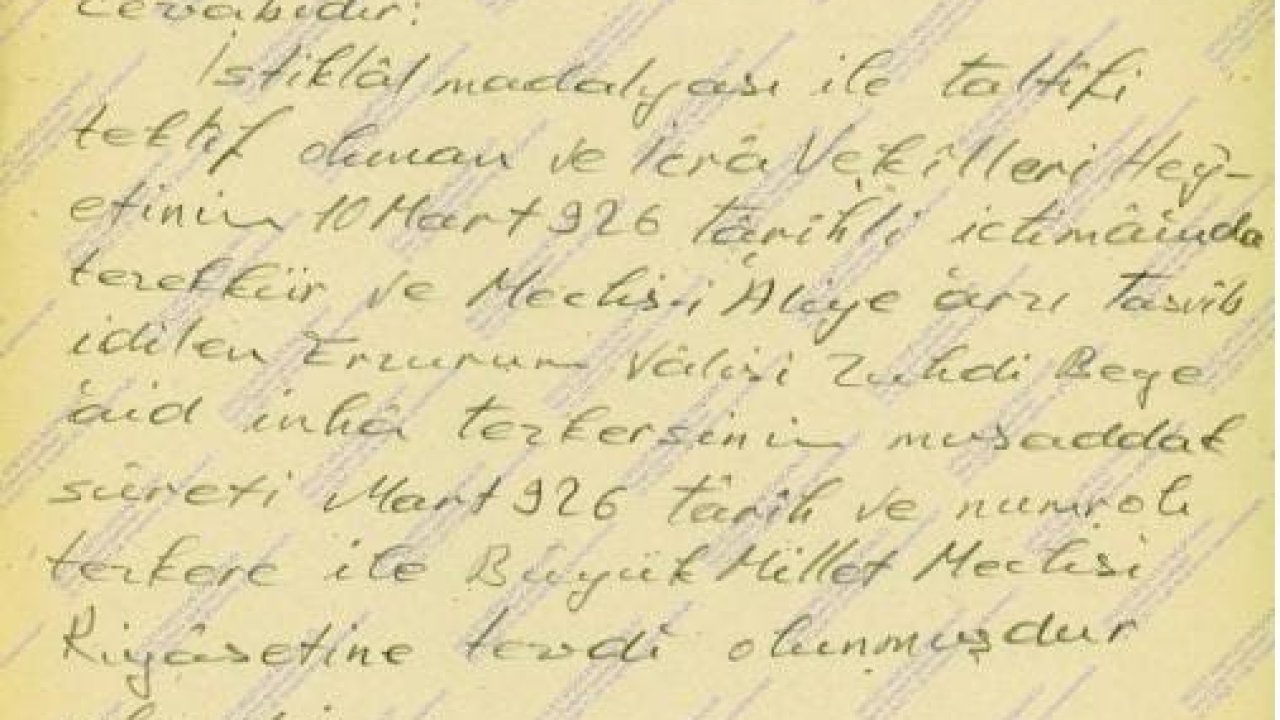 Cevabıdır:
İstiklâl madalyası ile taltîfi
teklîf olunan ve İcrâ Vekîlleri Hey-
etinin 10 Mart 926 târihli ictimâında
tezekkür ve Meclis-i Âliye arzı tasvîb
idilen Erzurum Vâlisi Zuhdi Beye
âid inhâ tezkersinin musaddak
sûreti Mart 926 târih ve numrolı
tezkere ile Büyük Millet Meclisi
Riyâsetine tevdî olunmuşdur